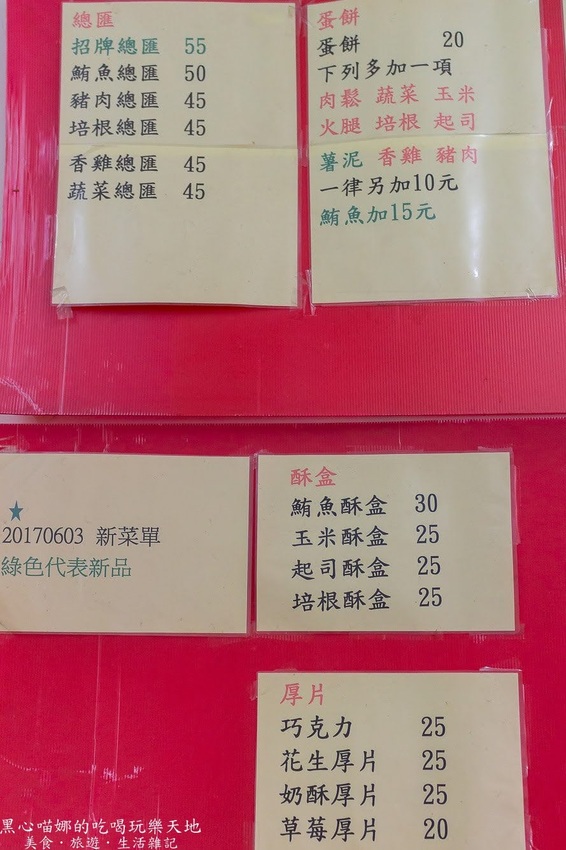 總匯
招牌總匯 55
鮪魚總匯 50
豬肉總匯 45
培根總匯 45
香雞總匯 45
蔬菜總匯 45
蛋餅
蛋餅 20
下列多加一項
肉鬆 蔬菜 玉米
火腿 培根 起司
薯泥 香雞 豬肉
一律另加10元
鮪魚加15元
★
20170603 新菜單
綠色代表新品
酥盒
鮪魚酥盒 30
玉米酥盒 25
起司酥盒 25
培根酥盒 25
厚片
巧克力 25
花生厚片 25
奶酥厚片 25
草莓厚片 20
黑心喵娜的吃喝玩樂天地
美食·旅遊·生活雜記